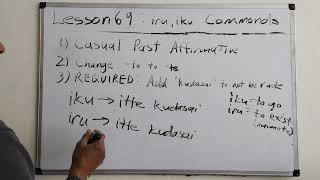 Lesson 69: iru, iku Commands
1) Casual Past Affirmative
2) Change -ta to -te
3) REQUIRED: Add 'kudasai' to not be rude
iku → itte kudasai
iru → itte kudasai
iku - to go
iru - to exist
(animate)